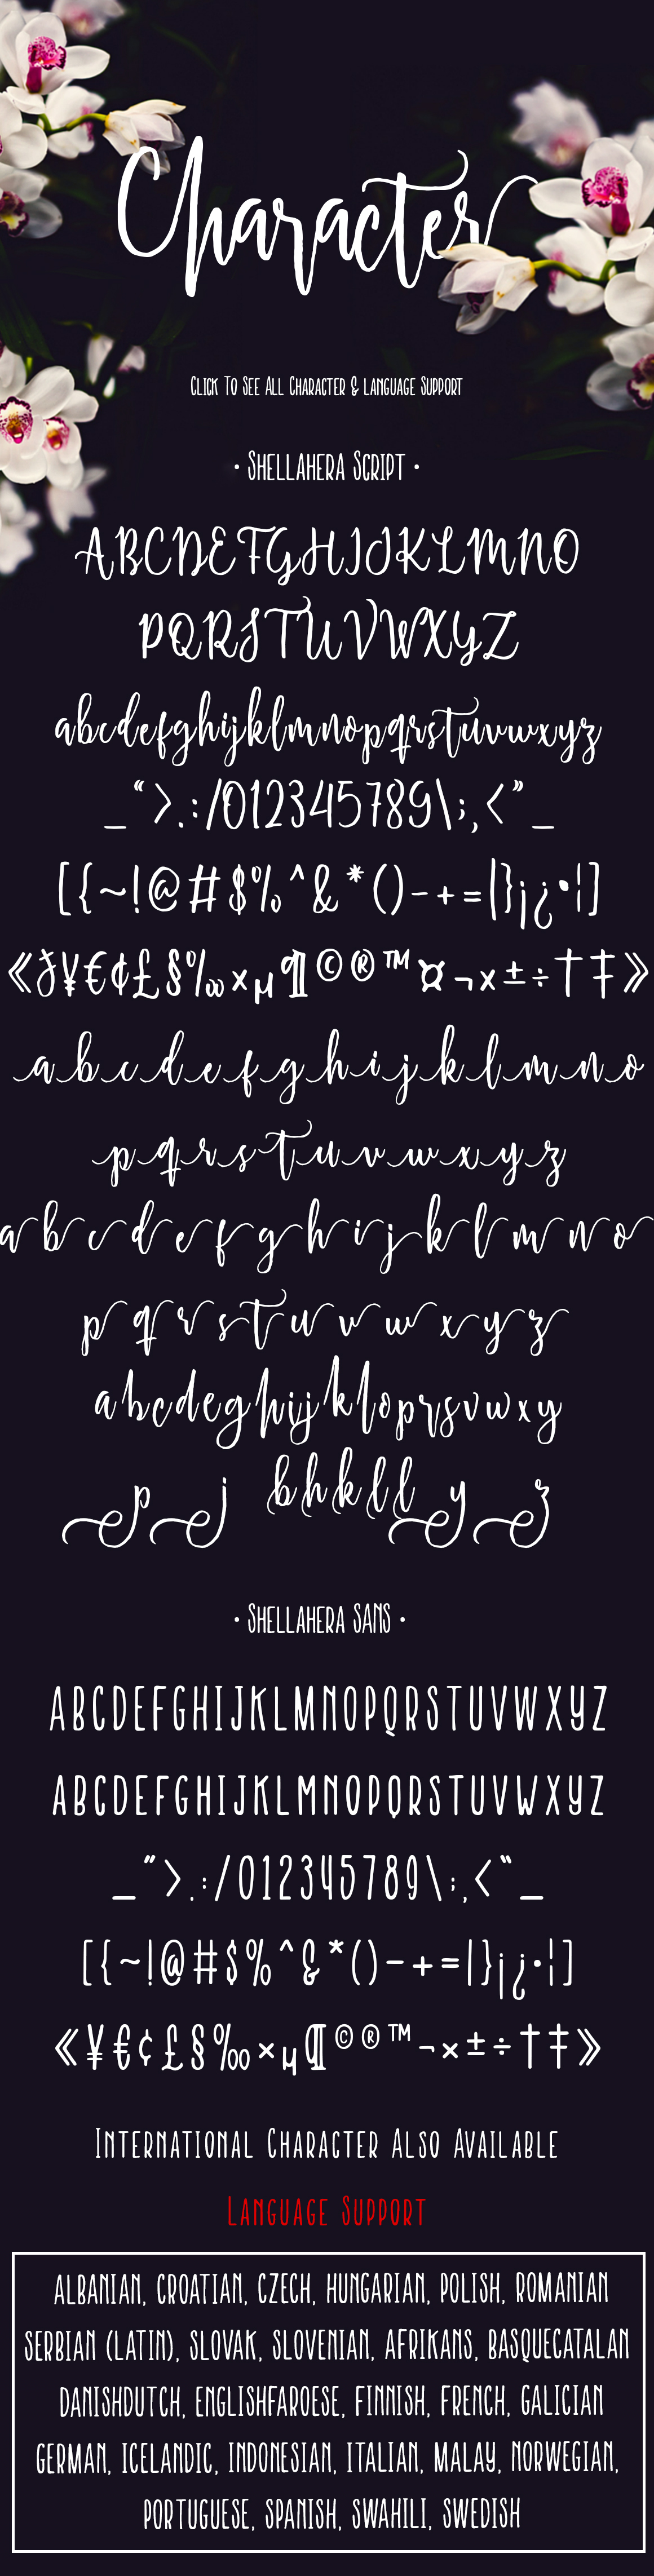 Character
Click To See All Character & language Support
• Shellahera Script •
ABCDEFGHIJKLMNO
PQRSTUVWXYZ
abcdefghijklmnopqrstuvwxyz
_“>.:/012345789\;,<”_
[{~!@#$%^&*()-+=|}¡¿•¦]
«¥€¢£§‰×µ¶©®™¤¬×±÷†‡»
a b c d e f g h i j k l m n o
p q r s t u v w x y z
a b c d e f g h i j k l m n o
p q r s t u v w x y z
a b c d e g h i j j k l o p r s v w x y
p j b h k l l y z
• Shellahera Sans •
ABCDEFGHIJKLMNOPQRSTUVWXYZ
ABCDEFGHIJKLMNOPQRSTUVWXYZ
_”>.:/012345789\;,<“_
[{~!@#$%^&*()-+=|}¡¿•¦]
«¥€¢£§‰×µ¶©®™¬×±÷†‡»
International Character Also Available
Language Support
ALBANIAN, CROATIAN, CZECH, HUNGARIAN, POLISH, ROMANIAN
SERBIAN (LATIN), SLOVAK, SLOVENIAN, AFRIKANS, BASQUECATALAN
DANISHDUTCH, ENGLISHFAROESE, FINNISH, FRENCH, GALICIAN
GERMAN, ICELANDIC, INDONESIAN, ITALIAN, MALAY, NORWEGIAN,
PORTUGUESE, SPANISH, SWAHILI, SWEDISH